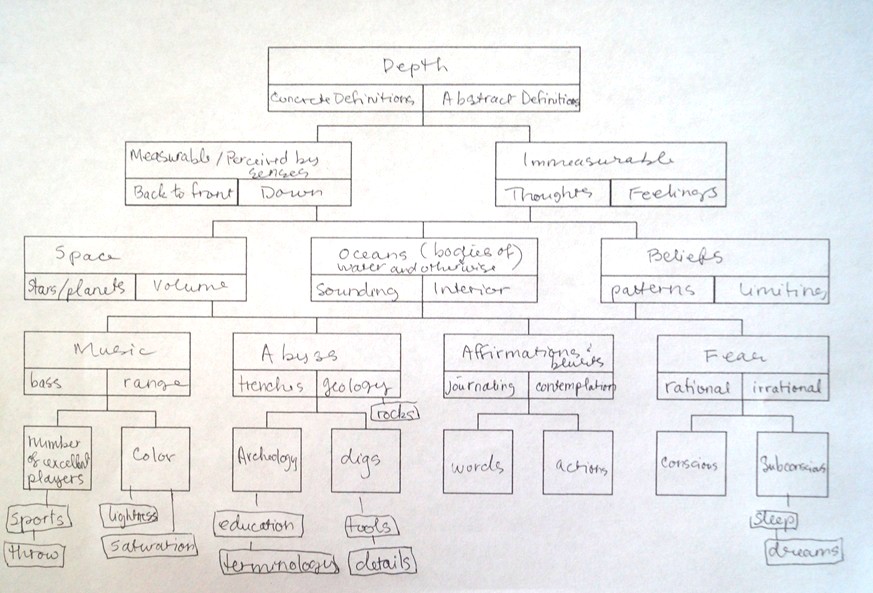 Depth
Concrete Definitions
Abstract Definitions
Measurable/Perceived by
senses
Back to front
Down
Immeasurable
Thoughts
Feelings
Space
Stars/planets
Volume
Oceans (bodies of)
water and otherwise
Sounding
Interior
Beliefs
patterns
limiting
Music
bass
range
Abyss
trenches
geology
rocks
Affirmations &
beliefs
journaling
contemplation
Fear
rational
irrational
number
of excellent
players
sports
throw
Color
lightness
saturation
Archeology
education
terminology
digs
tools
details
words
actions
Conscious
Subconscious
sleep
dreams